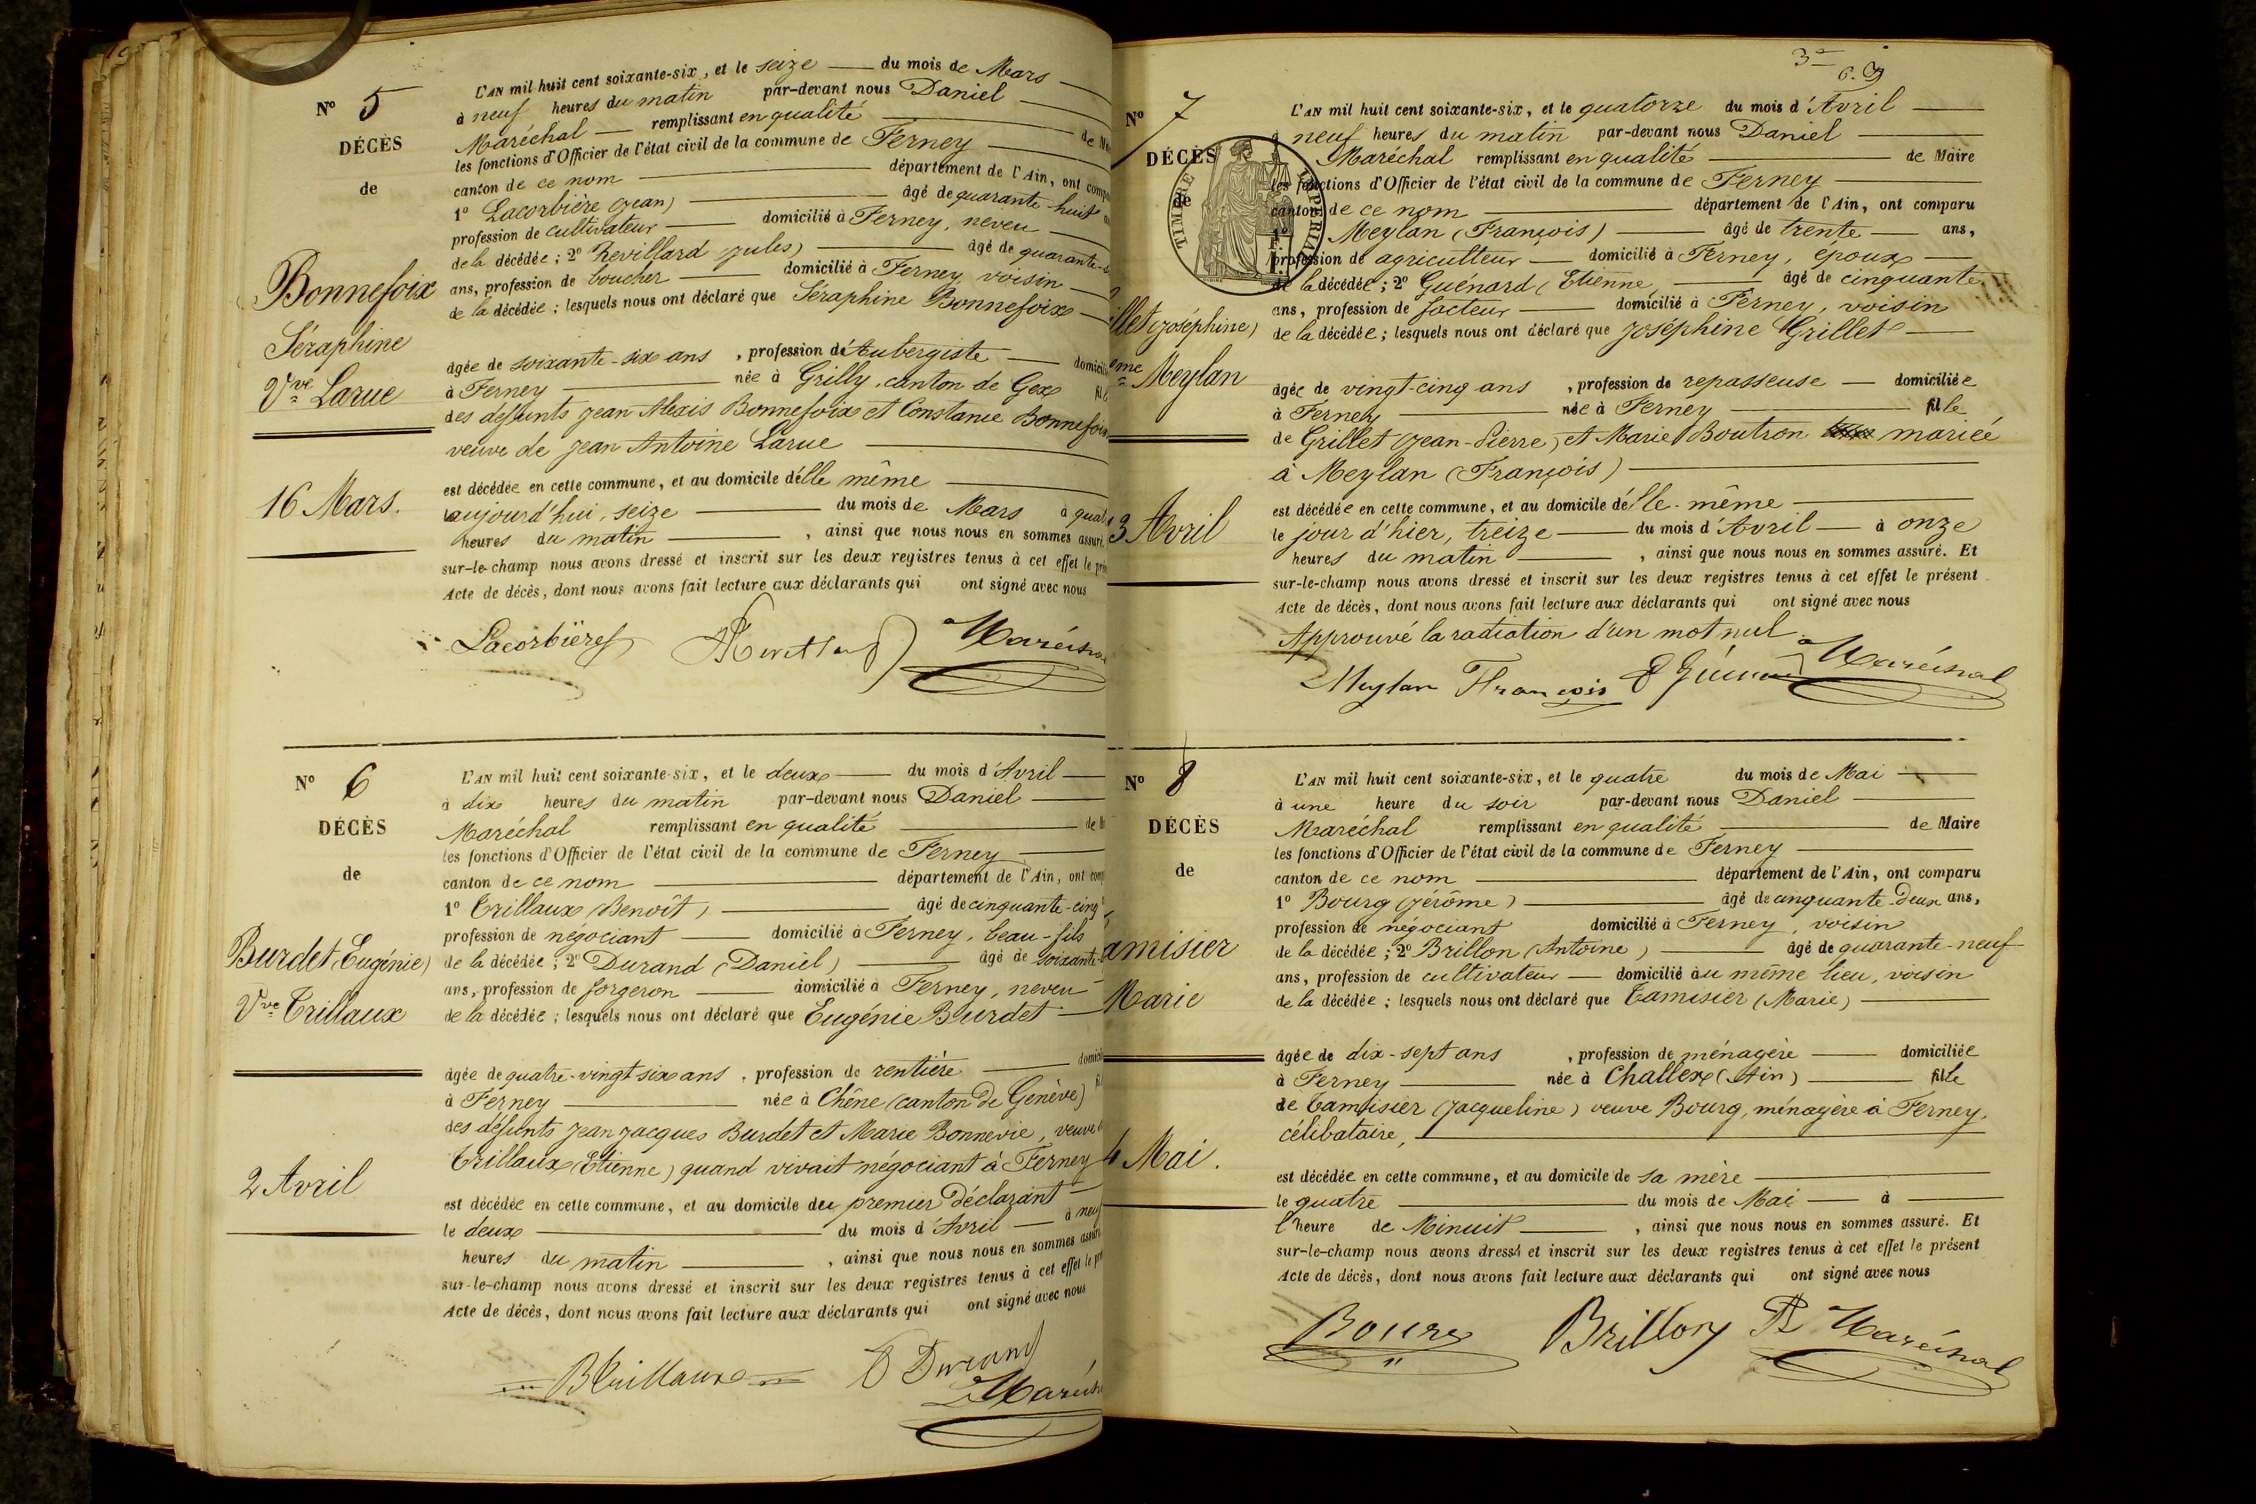 N° 5
DÉCÈS
de
Bonnefoix
Séraphine
Vve Larue
16 Mars.
L'AN mil huit cent soixante-six, et le seize du mois de Mars
à neuf heures du matin par-devant nous Daniel
Maréchal remplissant en qualité de
les fonctions d'Officier de l'état civil de la commune de Ferney
canton de ce nom département de l'Ain, ont
1° Lacorbière (Jean) âgé de quarante-huit
profession de cultivateur domicilié à Ferney, neveu
de la décédée; 2° Revillard (Jules) âgé de quarante-
ans, profession de boucher domicilié à Ferney, voisin
de la décédée; lesquels nous ont déclaré que Séraphine Bonnefoix
âgée de soixante-six ans, profession d'Aubergiste
à Ferney née à Grilly, canton de Gex
des défunts Jean Alexis Bonnefoix et Constance Bonnefoix
veuve de Jean Antoine Larue
est décédée en cette commune, et au domicile d'elle même
aujourd'hui, seize du mois de Mars à
heures du matin, ainsi que nous nous en sommes assuré.
sur-le-champ nous avons dressé et inscrit sur les deux registres tenus à cet effet le
Acte de décès, dont nous avons fait lecture aux déclarants qui ont signé avec nous
Lacorbière Maréchal
N° 6
DÉCÈS
de
Burdet (Eugénie)
Vve Trillaux
2 Avril
L'AN mil huit cent soixante-six, et le deux du mois d'Avril
à dix heures du matin par-devant nous Daniel
Maréchal remplissant en qualité de
les fonctions d'Officier de l'état civil de la commune de Ferney
canton de ce nom département de l'Ain, ont
1° Trillaux (Benoît) âgé de cinquante-cinq
profession de négociant domicilié à Ferney, beau-fils
de la décédée; 2° Durand (Daniel) âgé de soixante-
ans, profession de forgeron domicilié à Ferney, neveu
de la décédée; lesquels nous ont déclaré que Eugénie Burdet
âgée de quatre-vingt six ans, profession de rentière
à Ferney née à Chêne (canton de Genève)
des défunts Jean Jacques Burdet et Marie Bonnevie, veuve
Trillaux (Etienne) quand vivait négociant à Ferney
est décédée en cette commune, et au domicile du premier déclarant
le deux du mois d'Avril à neuf
heures du matin, ainsi que nous nous en sommes assuré
sur-le-champ nous avons dressé et inscrit sur les deux registres tenus à cet effet le
Acte de décès, dont nous avons fait lecture aux déclarants qui ont signé avec nous
B Trillaux D Durand
Maréchal
3e
N° 7
DÉCÈS
de
TIMBRE IMPÉRIAL
illet (Joséphine)
Meylan
3 Avril
L'AN mil huit cent soixante-six, et le quatorze du mois d'Avril
à neuf heures du matin par-devant nous Daniel
Maréchal remplissant en qualité de Maire
les fonctions d'Officier de l'état civil de la commune de Ferney
canton de ce nom département de l'Ain, ont comparu
1° Meylan (François) âgé de trente ans,
profession de agriculteur domicilié à Ferney, époux
de la décédée; 2° Guénard (Etienne) âgé de cinquante
ans, profession de facteur domicilié à Ferney, voisin
de la décédée; lesquels nous ont déclaré que Joséphine Grillet
âgée de vingt-cinq ans, profession de repasseuse domiciliée
à Ferney née à Ferney fille
de Grillet (Jean-Pierre) et Marie Boutron mariée
à Meylan (François)
est décédée en cette commune, et au domicile d'elle-même
le jour d'hier, treize du mois d'Avril à onze
heures du matin, ainsi que nous nous en sommes assuré. Et
sur-le-champ nous avons dressé et inscrit sur les deux registres tenus à cet effet le présent
Acte de décès, dont nous avons fait lecture aux déclarants qui ont signé avec nous
Approuvé la radiation d'un mot nul.
Meylan François Maréchal
N° 8
DÉCÈS
de
amisier
Marie
4 Mai.
L'AN mil huit cent soixante-six, et le quatre du mois de Mai
à une heure du soir par-devant nous Daniel
Maréchal remplissant en qualité de Maire
les fonctions d'Officier de l'état civil de la commune de Ferney
canton de ce nom département de l'Ain, ont comparu
1° Bourg (Jérôme) âgé de cinquante-deux ans,
profession de négociant domicilié à Ferney, voisin
de la décédée; 2° Brillon (Antoine) âgé de quarante-neuf
ans, profession de cultivateur domicilié au même lieu, voisin
de la décédée; lesquels nous ont déclaré que Tamisier (Marie)
âgée de dix-sept ans, profession de ménagère domiciliée
à Ferney née à Challex (Ain) fille
de Tamisier (Jacqueline) veuve Bourg, ménagère à Ferney,
célibataire,
est décédée en cette commune, et au domicile de sa mère
le quatre du mois de Mai à
l'heure de Minuit, ainsi que nous nous en sommes assuré. Et
sur-le-champ nous avons dressé et inscrit sur les deux registres tenus à cet effet le présent
Acte de décès, dont nous avons fait lecture aux déclarants qui ont signé avec nous
Bourg Brillon Maréchal